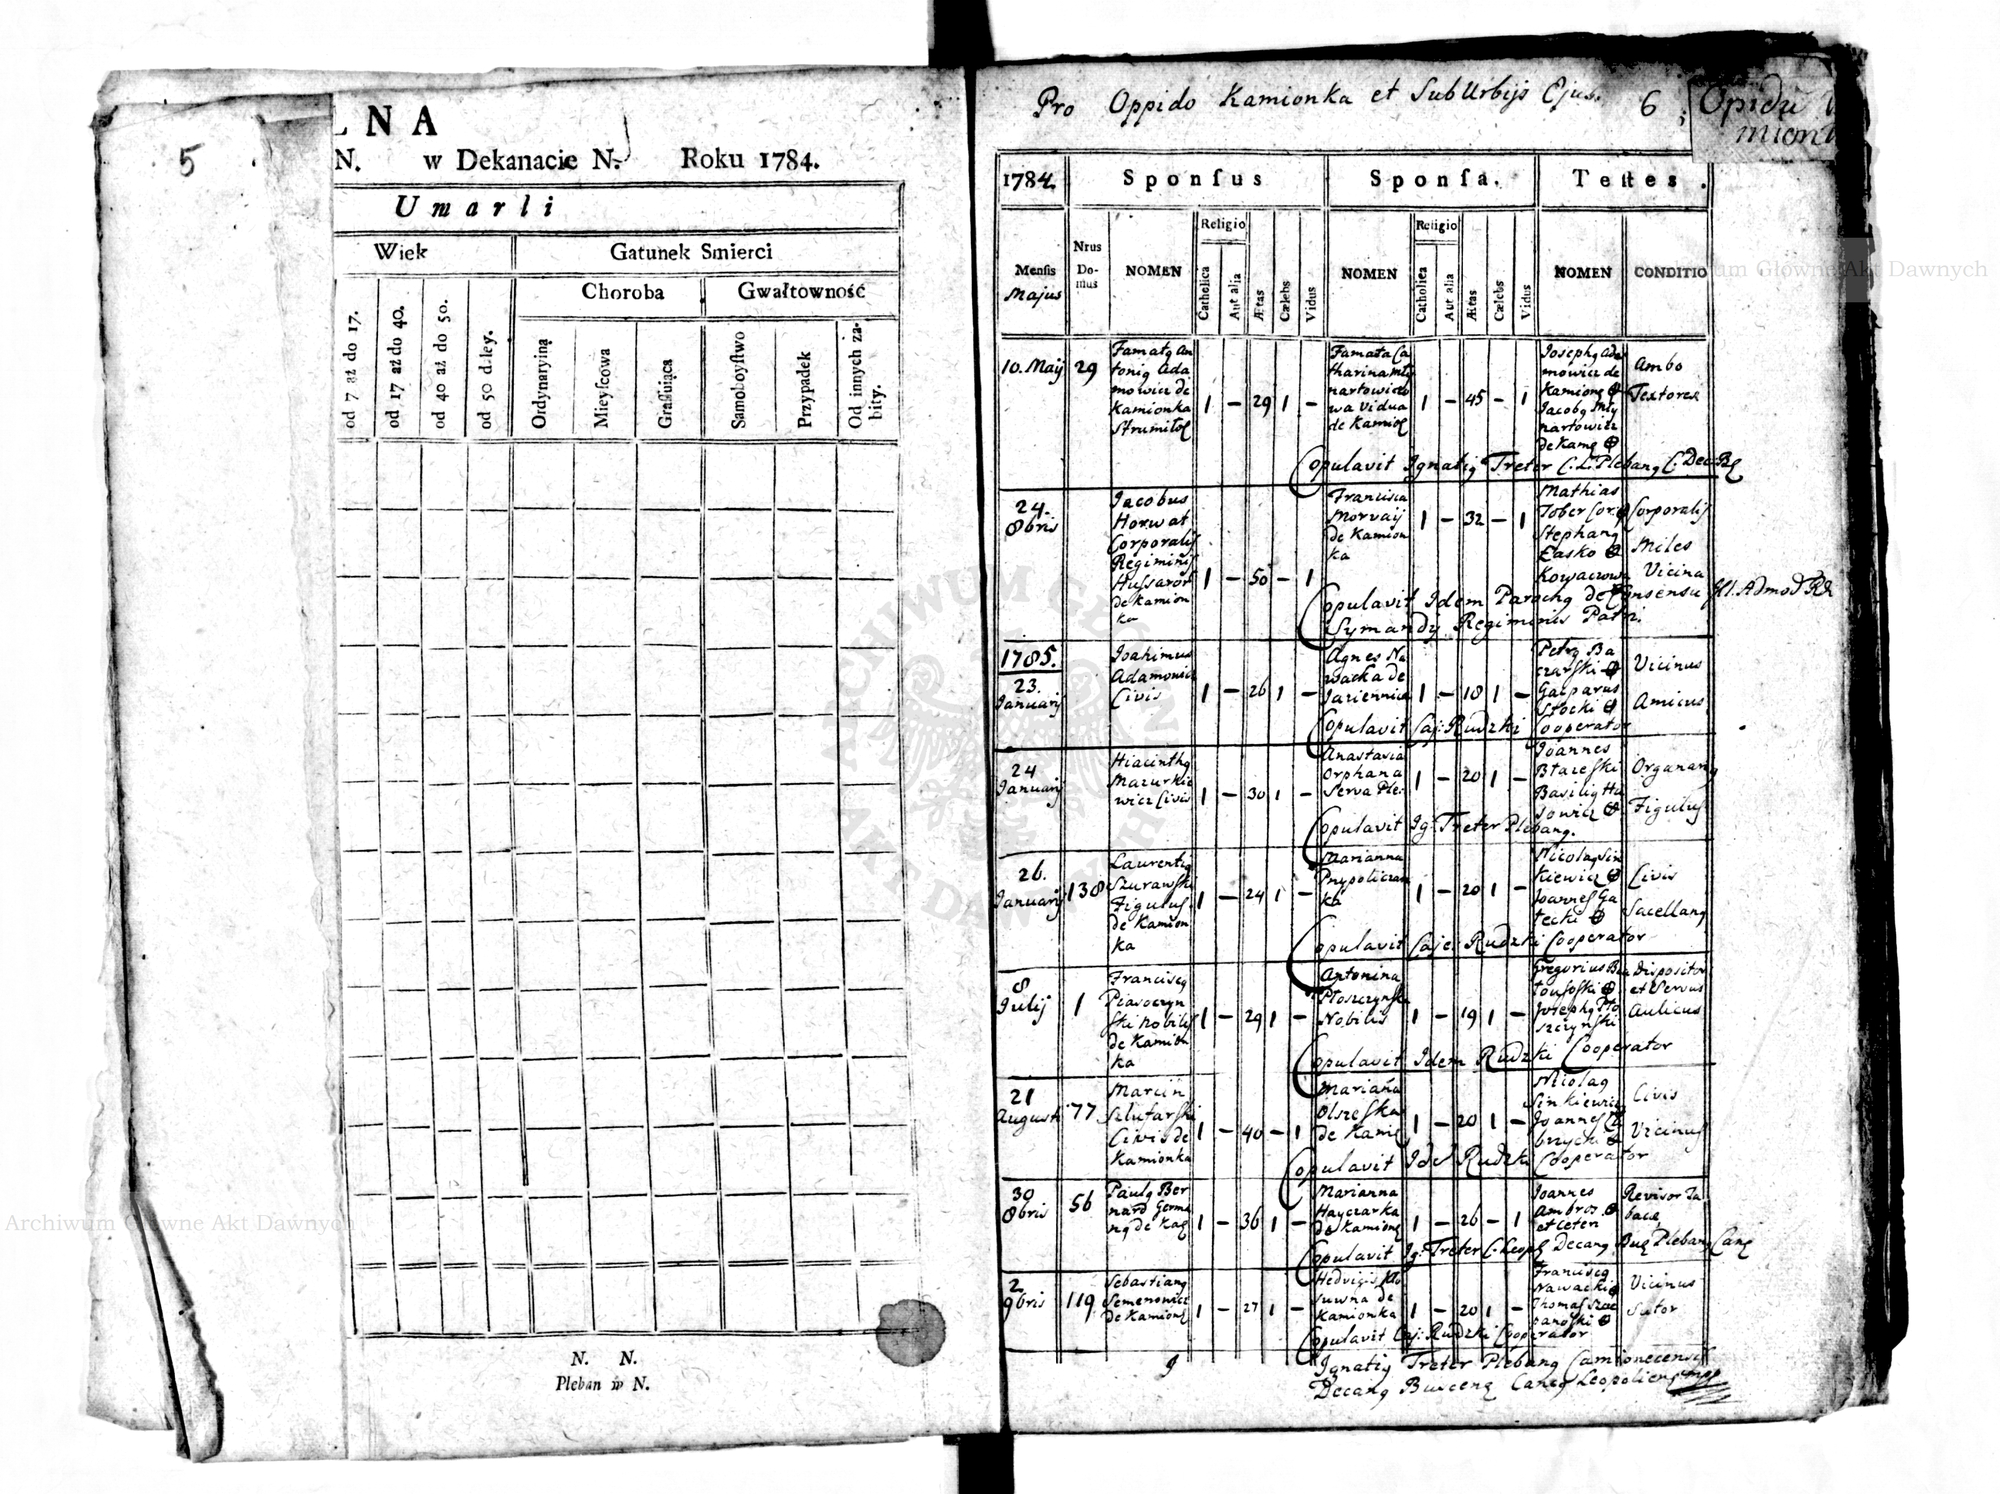 5
LNA
N. w Dekanacie N. Roku 1784.
Umarli
Wiek
Gatunek Smierci
Choroba
Gwałtowność
od 7 aż do 17.
od 17 aż do 40.
od 40 aż do 50.
od 50 dley.
Ordynaryiną
Mieyſcowa
Graſſuiąca
Samoboyſtwo
Przypadek
Od innych zabity.
N. N.
Pleban w N.
Pro Oppido Kamionka et SubUrbijs Ejus.
6
Opidu
mion
1784.
Sponſus
Sponſa.
Teſtes.
Menſis
Majus
Nrus Domus
NOMEN
Religio
Catholica
Aut alia
Ætas
Cælebs
Vidus
NOMEN
Religio
Catholica
Aut alia
Ætas
Cælebs
Vidus
NOMEN
CONDITIO
10. Maij
29
Famatq An
toniq Ada
mowicz de
Kamionka
Strumiłoę
1 – 29 1 –
Famata Ca
tharina Mły
nartowiczo
wa Vidua
de Kamioę
1 – 45 – 1
Josephq Ada
mowicz de
Kamionę
Jacobq Mły
nartowicz
de Kamę
Ambo
Textores
Copulavit Ignatiq Treter C. L. Plebanq C. Dec.
24.
8bris
Jacobus
Horwat
Corporalis
Regiminis
Hussaror
de Kamion
ka
1 – 50 – 1
Francisca
Morvaij
de Kamion
ka
1 – 32 – 1
Mathias
Tober Cor.
Stephanq
Łasko
Kowaczowa
Corporalis
Miles
Vicina
Copulavit Idem Parochq de Consensu Ill. Admod Rd
Symandy Regiminis Patri.
1785.
23.
Januarij
Joahimus
Adamowicz
Civis
1 – 26 1 –
Agnes Na
wacka de
Jaziennica
1 – 18 1 –
Petrq Ba
czarski
Gasparus
Stocki
Vicinus
Amicus
Copulavit Caj: Rudzki Cooperator
24
Januarij
Hiacinthq
Mazurkie
wicz Civis
1 – 30 1 –
Anastasia
Orphana
Serva Ple.
1 – 20 1 –
Joannes
Błazeski
Basiliq Hu
sowicz
Organarq
Figulus
Copulavit Ig: Treter Plebanq.
26.
Januarij
138
Laurentiq
Szurawski
Figulus
de Kamion
ka
1 – 24 1 –
Marianna
Przypoliczan
ka
1 – 20 1 –
Nicolaq Sin
kiewicz
Joannes Ga
tecki
Civis
Sacellanq
Copulavit Caje: Rudzki Cooperator
8
Julij
1
Franciscq
Piasoczyn
ski Nobilis
de Kamion
ka
1 – 29 1 –
Antonina
Ptoszczynska
Nobilis
1 – 19 1 –
Gregorius
Josephq Pto
szczynski
Dispositor
et Servus
Aulicus
Copulavit Idem Rudzki Cooperator
21
Augusti
77
Marcin
Szlufarski
Civis de
Kamionka
1 – 40 – 1
Mariana
Olszeska
de Kamię
1 – 20 1 –
Nicolaq
Sinkiewicz
Joannes
Civis
Vicinus
Copulavit Ide Rudzki Cooperator
30
8bris
56
Paulq Ber
nard Germa
nq de Kaę
1 – 36 1 –
Marianna
Hayczarka
de Kamionę
1 – 26 – 1
Joannes
Ambros
et ceteri
Revisor Ta
baca
Copulavit Ig: Treter C. Leopę Decanq Buę Plebanq Canę
2
9bris
119
Sebastianq
Semenowicz
de Kamionę
1 – 27 1 –
Hedvigis Klo
suwna de
Kamionka
1 – 20 1 –
Franciscq
Nawacki
Thomas Szcze
panoski
Vicinus
Sutor
Copulavit Caj: Rudzki Cooperator
Ignatiq Treter Plebanq Camionecensis
Decanq Buscenę Canq Leopoliens mpp
Archiwum Główne Akt Dawnych
Archiwum Główne Akt Dawnych
ARCHIWUM GŁÓWNE AKT DAWNYCH